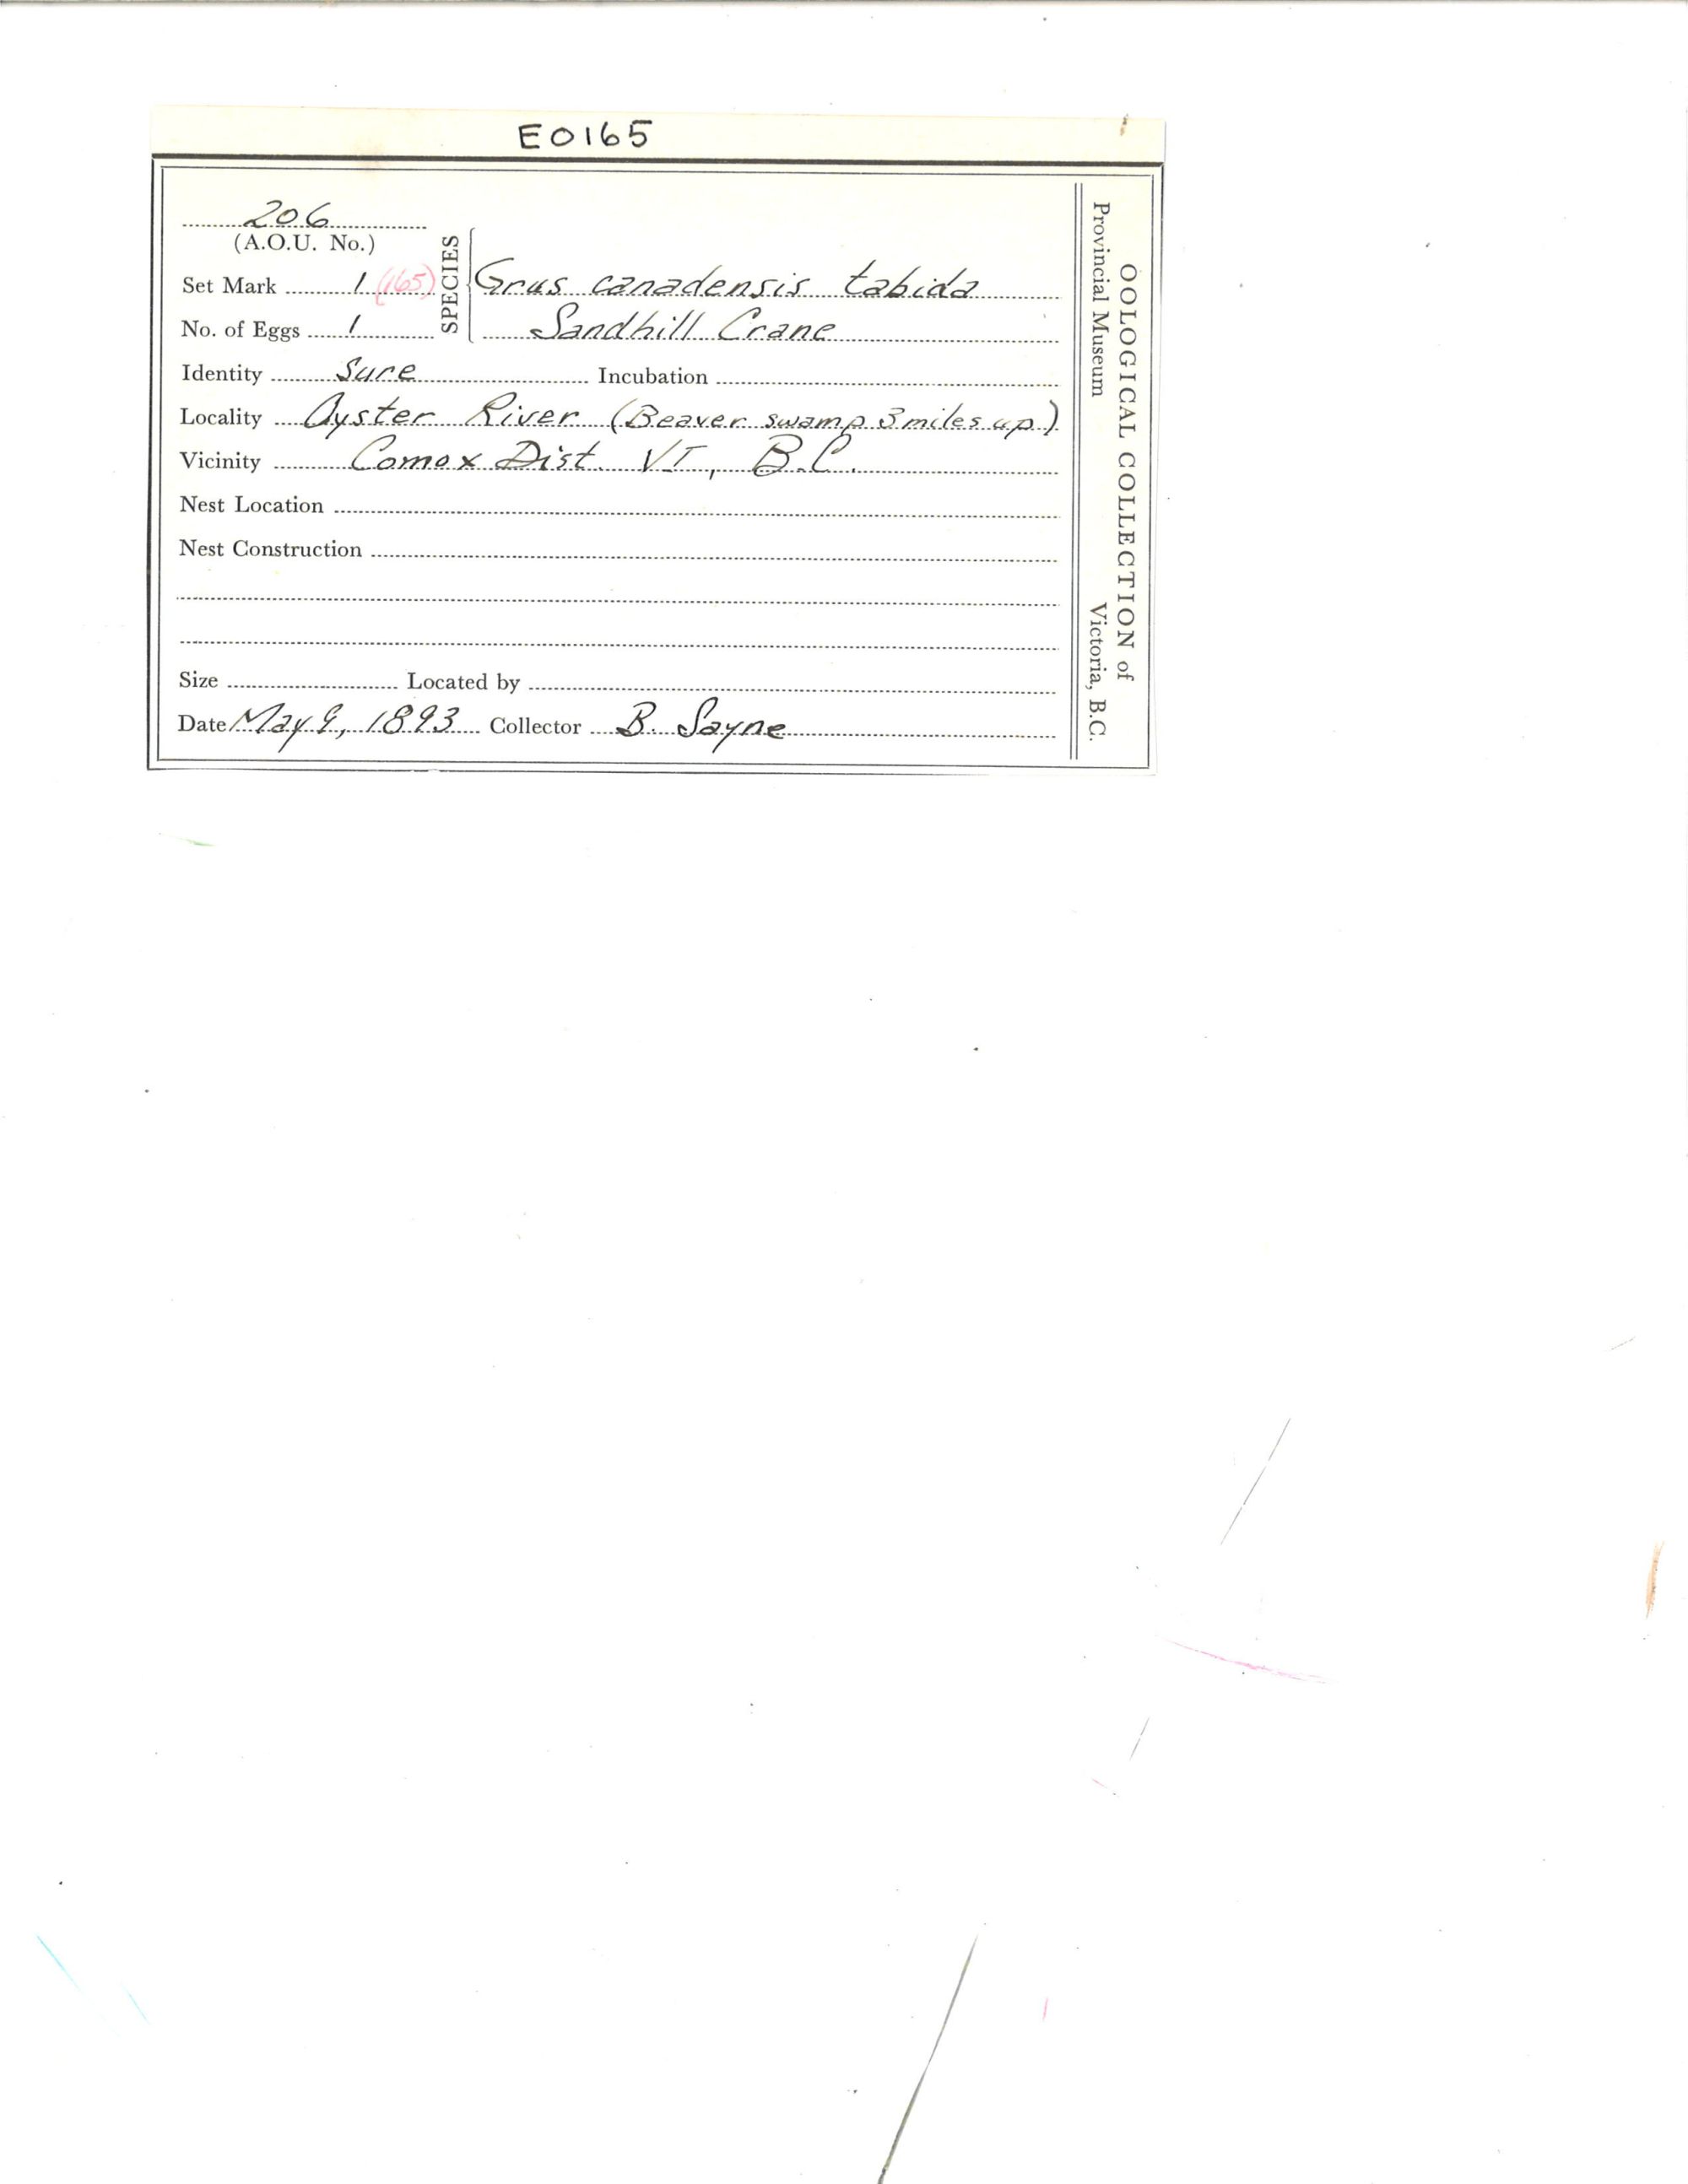 E0165
206
(A.O.U. No.)
Set Mark 1 (165)
No. of Eggs 1
SPECIES
Grus canadensis tabida
Sandhill Crane
Identity Sure Incubation
Locality Oyster River (Beaver swamp 3 miles up)
Vicinity Comox Dist. VI, B.C.
Nest Location
Nest Construction
Size Located by
Date May 9, 1893 Collector B. Sayne
OOLOGICAL COLLECTION of
Provincial Museum Victoria, B.C.